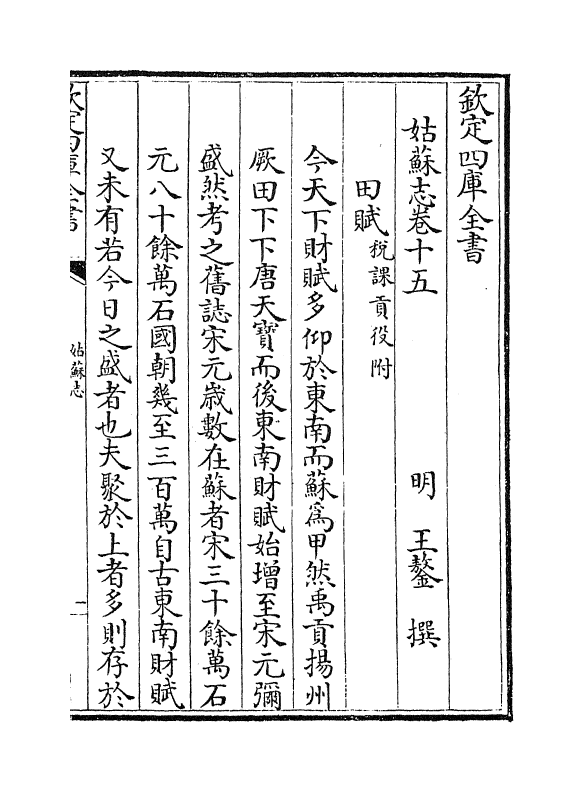 欽定四庫全書
姑蘇志卷十五
明 王鏊 撰
田賦 稅課貢役附
今天下財賦多仰於東南而蘇為甲然禹貢揚州
厥田下下唐天寶而後東南財賦始增至宋元彌
盛然考之舊誌宋元歲數在蘇者宋三十餘萬石
元八十餘萬石國朝幾至三百萬自古東南財賦
又未有若今日之盛者也夫聚於上者多則存於
欽定四庫全書
姑蘇志
一